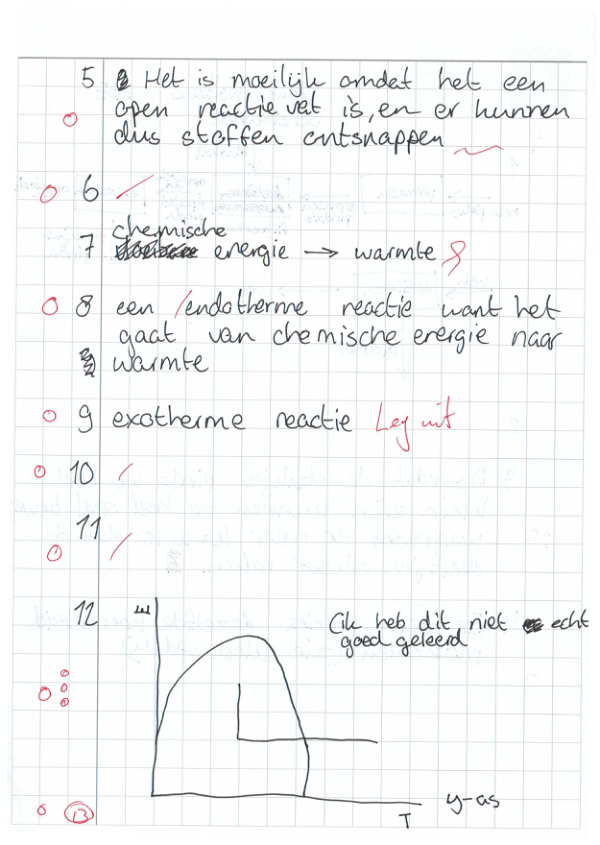 5 Het is moeilijk omdat het een
open reactie vat is, en er kunnen
dus stoffen ontsnappen
6
chemische
7 energie → warmte
8 een endotherme reactie want het
gaat van chemische energie naar
warmte
9 exotherme reactie Leg uit
10
11
12 E
(Ik heb dit niet echt
goed geleerd
y-as
T
13